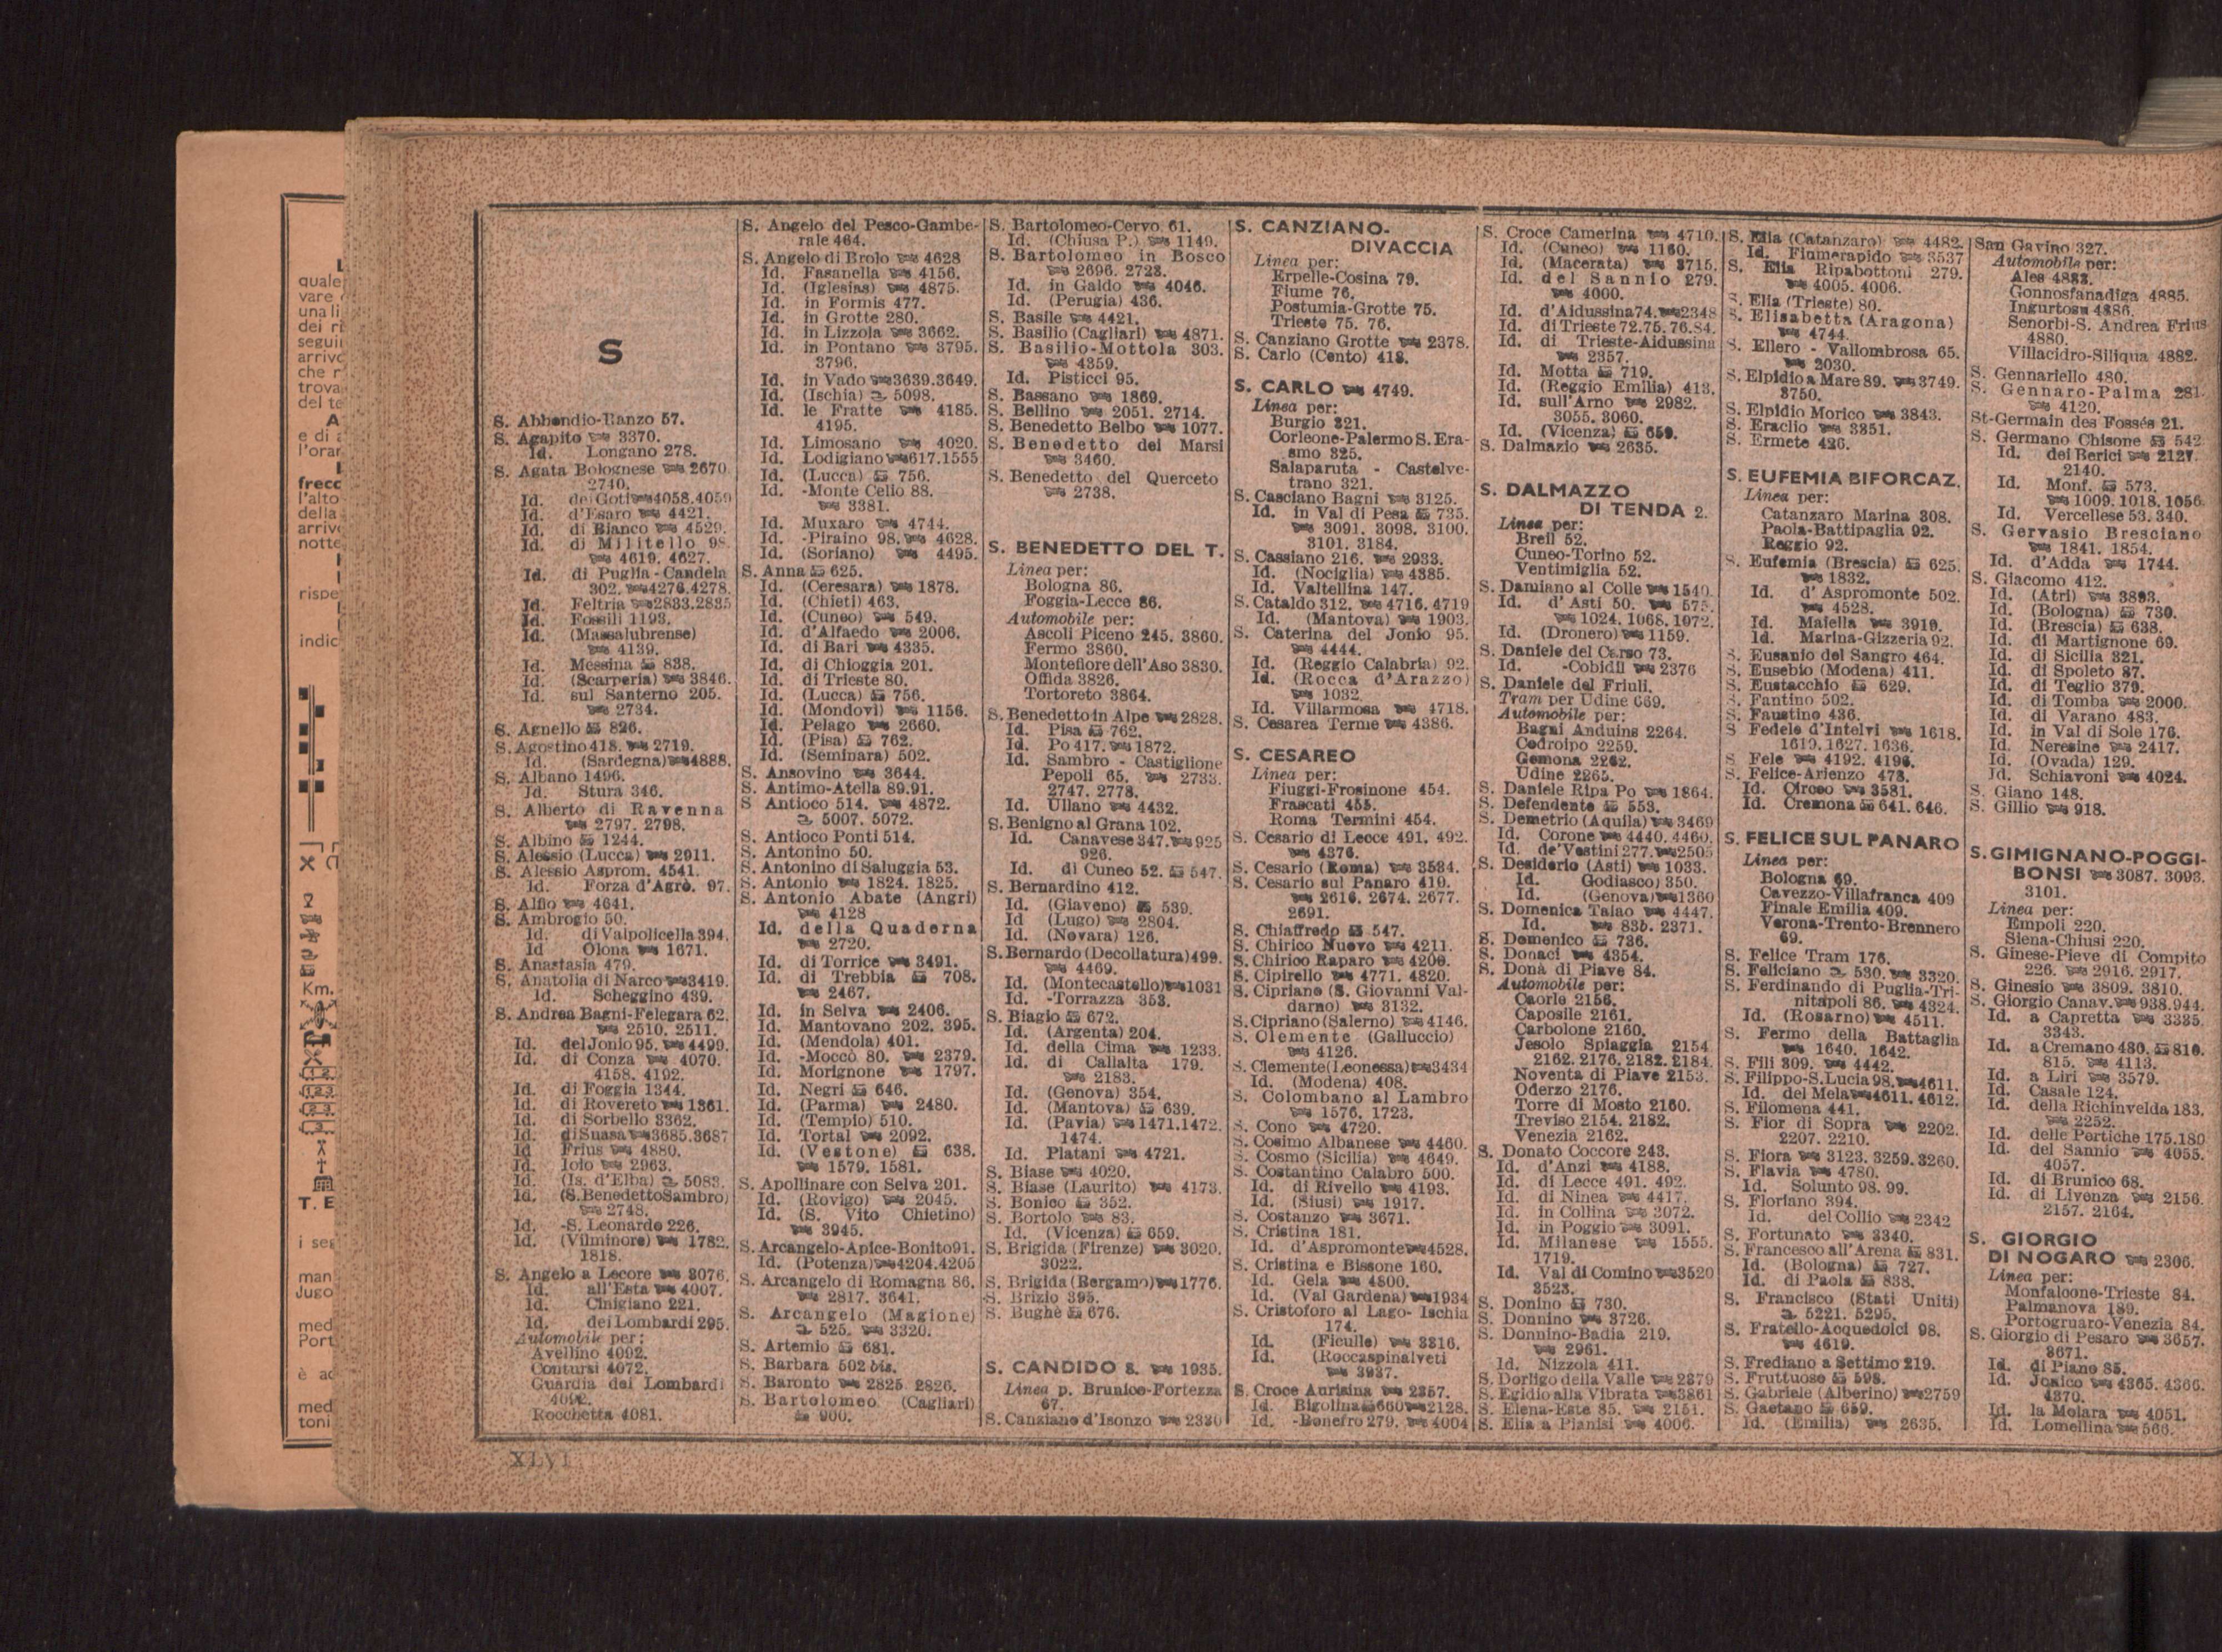 S
S. Abbondio-Ranzo 57.
S. Agapito 3370.
Id. Longano 278.
S. Agata Bolognese 2670
2740.
Id. dei Goti 4058.4059
Id. d'Esaro 4421.
Id. di Bianco 4529.
Id. di Militello 98.
4619. 4627.
Id. di Puglia-Candela
302. 4276.4278.
Id. Feltria 2833.2835
Id. Fossili 1193.
Id. (Massalubrense)
4139.
Id. Messina 838.
Id. (Scarperia) 3846.
Id. sul Santerno 205.
2734.
S. Agnello 826.
S. Agostino 418. 2719.
Id. (Sardegna) 4888.
S. Albano 1496.
Id. Stura 346.
S. Alberto di Ravenna
2797. 2798.
S. Albino 1244.
S. Alessio (Lucca) 2911.
S. Alessio Asprom. 4541.
Id. Forza d'Agrò. 97.
S. Alfio 4641.
S. Ambrogio 50.
Id. di Valpolicella 394.
Id Olona 1671.
S. Anastasia 479.
S. Anatolia di Narco 3419.
Id. Scheggino 439.
S. Andrea Bagni-Felegara 62.
2510. 2511.
Id. del Jonio 95. 4499.
Id. di Conza 4070.
4158. 4192.
Id. di Foggia 1344.
Id. di Rovereto 1361.
Id. di Sorbello 3362.
Id. di Suasa 3685.3687
Id Frius 4880.
Id. Iolo 2963.
Id. (Is. d'Elba) 5083.
Id. (S.Benedetto Sambro)
2748.
Id. -S. Leonardo 226.
Id. (Vilminore) 1782.
1818.
S. Angelo a Lecore 3076.
Id. all'Esta 4007.
Id. Cinigiano 221.
Id. dei Lombardi 295.
Automobile per:
Avellino 4092.
Contursi 4072.
Guardia dei Lombardi
4092.
Rocchetta 4081.
S. Angelo del Pesco-Gambe-
rale 464.
S. Angelo di Brolo 4628
Id. Fasanella 4156.
Id. (Iglesias) 4875.
Id. in Formis 477.
Id. in Grotte 280.
Id. in Lizzola 3662.
Id. in Pontano 3795.
3796.
Id. in Vado 3639.3649.
Id. (Ischia) 5098.
Id. le Fratte 4185.
4195.
Id. Limosano 4020.
Id. Lodigiano 617.1555
Id. (Lucca) 756.
Id. -Monte Celio 88.
3381.
Id. Muxaro 4744.
Id. -Piraino 98. 4628.
Id. (Soriano) 4495.
S. Anna 625.
Id. (Ceresara) 1878.
Id. (Chieti) 463.
Id. (Cuneo) 549.
Id. d'Alfaedo 2006.
Id. di Bari 4335.
Id. di Chioggia 201.
Id. di Trieste 80.
Id. (Lucca) 756.
Id. (Mondovì) 1156.
Id. Pelago 2660.
Id. (Pisa) 762.
Id. (Seminara) 502.
S. Ansovino 3644.
S. Antimo-Atella 89.91.
S Antioco 514. 4872.
5007. 5072.
S. Antioco Ponti 514.
S. Antonino 50.
S. Antonino di Saluggia 53.
S. Antonio 1824. 1825.
S. Antonio Abate (Angri)
4128
Id. della Quaderna
2720.
Id. di Torrice 3491.
Id. di Trebbia 708.
2467.
Id. in Selva 2406.
Id. Mantovano 202. 395.
Id. (Mendola) 401.
Id. -Moccò 80. 2379.
Id. Morignone 1797.
Id. Negri 646.
Id. (Parma) 2480.
Id. (Tempio) 510.
Id. Tortal 2092.
Id. (Vestone) 638.
1579. 1581.
S. Apollinare con Selva 201.
Id. (Rovigo) 2045.
Id. (S. Vito Chietino)
3945.
S. Arcangelo-Apice-Bonito 91.
Id. (Potenza) 4204.4205
S. Arcangelo di Romagna 86.
2817. 3641.
S. Arcangelo (Magione)
525. 3320.
S. Artemio 681.
S. Barbara 502 bis.
S. Baronto 2825 2826.
S. Bartolomeo (Cagliari)
900.
S. Bartolomeo-Cervo 61.
Id. (Chiusa P.) 1149.
S. Bartolomeo in Bosco
2696. 2728.
Id. in Galdo 4046.
Id. (Perugia) 436.
S. Basile 4421.
S. Basilio (Cagliari) 4871.
S. Basilio-Mottola 303.
4359.
Id. Pisticci 95.
S. Bassano 1869.
S. Bellino 2051. 2714.
S. Benedetto Belbo 1077.
S. Benedetto dei Marsi
3460.
S. Benedetto del Querceto
2738.
S. BENEDETTO DEL T.
Linea per:
Bologna 86.
Foggia-Lecce 86.
Automobile per:
Ascoli Piceno 245. 3860.
Fermo 3860.
Montefiore dell'Aso 3830.
Offida 3826.
Tortoreto 3864.
S. Benedetto in Alpe 2828.
Id. Pisa 762.
Id. Po 417. 1872.
Id. Sambro - Castiglione
Pepoli 65. 2733.
2747. 2778.
Id. Ullano 4432.
S. Benigno al Grana 102.
Id. Canavese 347. 925
926.
Id. di Cuneo 52. 547.
S. Bernardino 412.
Id. (Giaveno) 539.
Id (Lugo) 2804.
Id. (Novara) 126.
S. Bernardo (Decollatura) 499.
4469.
Id. (Montecastello) 1031
Id. -Torrazza 353.
S. Biagio 672.
Id. (Argenta) 204.
Id. della Cima 1233.
Id. di Callalta 179.
2183.
Id. (Genova) 354.
Id. (Mantova) 639.
Id. (Pavia) 1471.1472.
1474.
Id. Platani 4721.
S. Biase 4020.
S. Biase (Laurito) 4173.
S. Bonico 352.
S. Bortolo 83.
Id. (Vicenza) 659.
S. Brigida (Firenze) 3020.
3022.
S. Brigida (Bergamo) 1776.
S. Brizio 395.
S. Bughè 676.
S. CANDIDO 8. 1935.
Linea p. Brunico-Fortezza
67.
S. Canziano d'Isonzo 2330
S. CANZIANO-
DIVACCIA
Linea per:
Erpelle-Cosina 79.
Fiume 76.
Postumia-Grotte 75.
Trieste 75. 76.
S. Canziano Grotte 2378.
S. Carlo (Cento) 418.
S. CARLO 4749.
Linea per:
Burgio 321.
Corleone-Palermo S. Era-
smo 325.
Salaparuta - Castelve-
trano 321.
S. Casciano Bagni 3125.
Id. in Val di Pesa 735.
3091. 3098. 3100.
3101. 3184.
S. Cassiano 216. 2933.
Id. (Nociglia) 4385.
Id. Valtellina 147.
S. Cataldo 312. 4716. 4719
Id. (Mantova) 1903.
S. Caterina del Jonio 95.
4444.
Id. (Reggio Calabria) 92.
Id. (Rocca d'Arazzo)
1032.
Id. Villarmosa 4718.
S. Cesarea Terme 4386.
S. CESAREO
Linea per:
Fiuggi-Frosinone 454.
Frascati 455.
Roma Termini 454.
S. Cesario di Lecce 491. 492.
4376.
S. Cesario (Roma) 3584.
S. Cesario sul Panaro 419.
2616. 2674. 2677.
2691.
S. Chiaffredo 547.
S. Chirico Nuovo 4211.
S. Chirico Raparo 4206.
S. Cipirello 4771. 4820.
S. Cipriano (S. Giovanni Val-
darno) 3132.
S. Cipriano (Salerno) 4146.
S. Clemente (Galluccio)
4126.
S. Clemente (Leonessa) 3434
Id. (Modena) 408.
S. Colombano al Lambro
1576. 1723.
S. Cono 4720.
S. Cosimo Albanese 4460.
S. Cosmo (Sicilia) 4649.
S. Costantino Calabro 500.
Id. di Rivello 4193.
Id. (Siusi) 1917.
S. Costanzo 3671.
S. Cristina 181.
Id. d'Aspromonte 4528.
S. Cristina e Bissone 160.
Id. Gela 4800.
Id. (Val Gardena) 1934
S. Cristoforo al Lago- Ischia
174.
Id. (Ficulle) 3316.
Id. (Roccaspinalveti
3937.
S. Croce Aurisina 2357.
Id. Bigolina 660 2128.
Id. -Bonefro 279. 4004
S. Croce Camerina 4710.
Id. (Cuneo) 1160.
Id. (Macerata) 3715.
Id. del Sannio 279.
4000.
Id. d'Aidussina 74. 2348
Id. di Trieste 72.75.76.84.
Id. di Trieste-Aidussina
2357.
Id. Motta 719.
Id. (Reggio Emilia) 413.
Id. sull'Arno 2982.
3055. 3060.
Id. (Vicenza) 659.
S. Dalmazio 2635.
S. DALMAZZO
DI TENDA 2.
Linea per:
Breil 52.
Cuneo-Torino 52.
Ventimiglia 52.
S. Damiano al Colle 1540.
Id. d'Asti 50. 575.
1024. 1068. 1072.
Id. (Dronero) 1159.
S. Daniele del Carso 73.
Id. -Cobidil 2376
S. Daniele del Friuli.
Tram per Udine 689.
Automobile per:
Bagni Anduins 2264.
Codroipo 2259.
Gemona 2262.
Udine 2265.
S. Daniele Ripa Po 1864.
S. Defendente 553.
S. Demetrio (Aquila) 3469
Id. Corone 4440. 4460.
Id. de'Vestini 277. 2505
S. Desiderio (Asti) 1033.
Id. Godiasco) 350.
Id. (Genova) 1360
S. Domenica Talao 4447.
Id. 835. 2371.
S. Domenico 736.
S. Donaci 4354.
S. Donà di Piave 84.
Automobile per:
Caorle 2156.
Caposile 2161.
Carbolone 2160.
Jesolo Spiaggia 2154
2162. 2176. 2182. 2184.
Noventa di Piave 2153.
Oderzo 2176.
Torre di Mosto 2160.
Treviso 2154. 2182.
Venezia 2162.
S. Donato Coccore 243.
Id. d'Anzi 4188.
Id. di Lecce 491. 492.
Id. di Ninea 4417.
Id. in Collina 3072.
Id. in Poggio 3091.
Id. Milanese 1555.
1719.
Id. Val di Comino 3520
3523.
S. Donino 730.
S. Donnino 3726.
S. Donnino-Badia 219.
2961.
Id. Nizzola 411.
S. Dorligo della Valle 2379
S. Egidio alla Vibrata 3861
S. Elena-Este 85. 2151.
S. Elia a Pianisi 4006.
S. Elia (Catanzaro) 4482.
Id. Fiumerapido 3537
S. Elia Ripabottoni 279.
4005. 4006.
S. Elia (Trieste) 80.
S. Elisabetta (Aragona)
4744.
S. Ellero - Vallombrosa 65.
2030.
S. Elpidio a Mare 89. 3749.
3750.
S. Elpidio Morico 3843.
S. Eraclio 3351.
S. Ermete 426.
S. EUFEMIA BIFORCAZ.
Linea per:
Catanzaro Marina 308.
Paola-Battipaglia 92.
Reggio 92.
S. Eufemia (Brescia) 625.
1832.
Id. d' Aspromonte 502.
4528.
Id. Maiella 3919.
Id. Marina-Gizzeria 92.
S. Eusanio del Sangro 464.
S. Eusebio (Modena) 411.
S. Eustacchio 629.
S. Fantino 502.
S. Faustino 436.
S Fedele d'Intelvi 1618.
1619. 1627. 1636.
S Fele 4192. 4196.
S. Felice-Arienzo 473.
Id. Circeo 3581.
Id. Cremona 641. 646.
S. FELICE SUL PANARO
Linea per:
Bologna 69.
Cavezzo-Villafranca 409
Finale Emilia 409.
Verona-Trento-Brennero
69.
S. Felice Tram 176.
S. Feliciano 530. 3320.
S. Ferdinando di Puglia-Tri-
nitapoli 86. 4324.
Id. (Rosarno) 4511.
S. Fermo della Battaglia
1640. 1642.
S. Fili 309. 4442.
S. Filippo-S.Lucia 98. 4611.
Id. del Mela 4611. 4612.
S. Filomena 441.
S. Fior di Sopra 2202.
2207. 2210.
S. Fiora 3123. 3259. 3260.
S. Flavia 4780.
Id. Solunto 98. 99.
S. Floriano 394.
Id. del Collio 2342
S. Fortunato 3340.
S. Francesco all'Arena 831.
Id. (Bologna) 727.
Id. di Paola 838.
S. Francisco (Stati Uniti)
5221. 5295.
S. Fratello-Acquedolci 98.
4619.
S. Frediano a Settimo 219.
S. Fruttuoso 598.
S. Gabriele (Alberino) 2759
S. Gaetano 659.
Id. (Emilia) 2635.
San Gavino 327.
Automobile per:
Ales 4883.
Gonnosfanadiga 4885.
Ingurtosu 4886.
Senorbì-S. Andrea Frius
4880.
Villacidro-Siliqua 4882.
S. Gennariello 480.
S. Gennaro-Palma 281.
4120.
St-Germain des Fossés 21.
S. Germano Chisone 542
Id. dei Berici 2127.
2140.
Id. Monf. 573.
1009. 1018. 1056.
Id. Vercellese 53. 340.
S. Gervasio Bresciano
1841. 1854.
Id. d'Adda 1744.
S. Giacomo 412.
Id. (Atri) 3893.
Id. (Bologna) 730.
Id. (Brescia) 638.
Id. di Martignone 69.
Id. di Sicilia 321.
Id. di Spoleto 87.
Id. di Teglio 379.
Id. di Tomba 2000.
Id. di Varano 483.
Id. in Val di Sole 176.
Id. Neresine 2417.
Id. (Ovada) 129.
Id. Schiavoni 4024.
S. Giano 148.
S. Gillio 918.
S. GIMIGNANO-POGGI-
BONSI 3087. 3093.
3101.
Linea per:
Empoli 220.
Siena-Chiusi 220.
S. Ginese-Pieve di Compito
226. 2916. 2917.
S. Ginesio 3809. 3810.
S. Giorgio Canav. 938.944.
Id. a Capretta 3335.
3343.
Id. a Cremano 480. 810.
815. 4113.
Id. a Liri 3579.
Id. Casale 124.
Id. della Richinvelda 183.
2252.
Id. delle Pertiche 175.180
Id. del Sannio 4055.
4057.
Id. di Brunico 68.
Id. di Livenza 2156.
2157. 2164.
S. GIORGIO
DI NOGARO 2306.
Linea per:
Monfalcone-Trieste 84.
Palmanova 189.
Portogruaro-Venezia 84.
S. Giorgio di Pesaro 3657.
3671.
Id. di Piano 85.
Id. Jonico 4365. 4366.
4370.
Id. la Molara 4051.
Id. Lomellina 566.
XLVI
quale
vare
una li
dei ri
segui
arrivo
che r
trova
del te
A
e di a
l'orar
frecc
l'alto
della
arrivo
notte
rispe
indic
Km.
T. E
i seg
man
Jugo
med
Port
è ad
med
toni